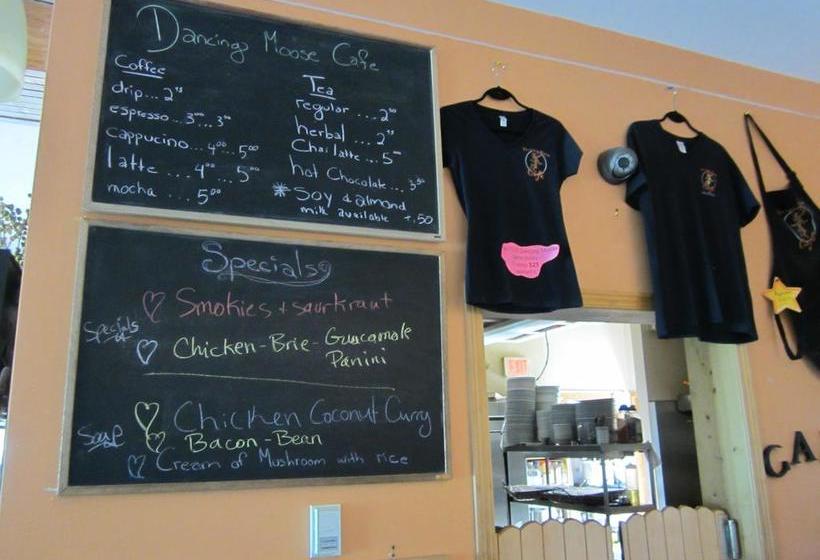 Dancing Moose Cafe
Coffee
drip... 2⁷⁵
espresso...3⁰⁰...3⁵⁰
cappucino...4⁰⁰...5⁰⁰
latte ...4⁰⁰...5⁰⁰
mocha ...5⁰⁰
Tea
regular ...2⁵⁰
herbal ...2⁷⁵
Chai latte...5⁰⁰
hot Chocolate...3⁵⁰
*Soy & almond
milk available +.50
Specials
Smokies + saurkraut
Specials
Chicken-Brie-Guacamole
Panini
Chicken Coconut Curry
Soup
Bacon-Bean
Cream of Mushroom with rice
$25
CA